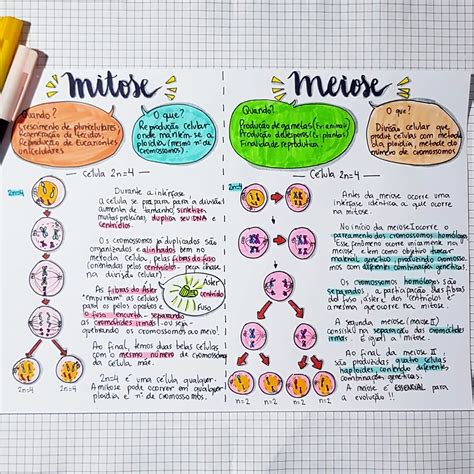 mitose
Quando?
Crescimento de pluricelulares
Regeneração de tecidos
Reprodução de Eucariontes
unicelulares
O que?
Reprodução celular
onde mantém-se a
ploidia (mesmo nº de
cromossomos).
Célula 2n=4
2n=4
Durante a intérfase
a célula se prepara para a divisão:
aumenta de tamanho, sintetiza
muitas proteínas, duplica seu DNA e
centríolos
Os cromossomos já duplicados são
organizados e alinhados no
metade célula, pelas fibras do fuso
(orientadas pelos centríolos - peça chave
na divisão celular).
As fibras do Áster
"empurram" as células
para os pólos opostos e
o fuso encurta - separando
as cromátides irmãs - ou seja -
quebrando os cromossomos ao meio!
Áster
centríolo
fuso
Ao final, temos duas belas células
com o mesmo número de cromossomos
da célula mãe.
2n=4 2n=4
2n=4 é uma célula qualquer.
A mitose pode ocorrer em qualquer
ploidia e nº de cromossomos.
Meiose
Quando?
Produção de gametas (Ex: animais)
Produção de esporos (Ex: plantas)
Finalidade reprodutiva
O que?
Divisão celular que
produz células com metade
da ploidia, metade do
número de cromossomos.
Célula 2n=4
2n=4
Antes da meiose ocorre uma
intérfase idêntica a que ocorre
na mitose.
No início da meiose I ocorre o
pareamento dos cromossomos homólogos
Esse fenômeno ocorre unicamente na
meiose e tem como objetivo trocar
material genético produzindo cromosso-
mos com diferentes combinações genéticas.
Os cromossomos homólogos são
separados e a participação das fibras
do fuso, áster dos centríolos é
a mesma que ocorre na mitose.
A segunda meiose (meiose II)
consiste na separação das cromátides
irmãs - é igual a mitose...
Ao final da meiose II,
são produzidas quatro células
haploides, contendo diferentes
combinações genéticas.
n=2 n=2 n=2 n=2
A meiose é ESSENCIAL para
a evolução!!